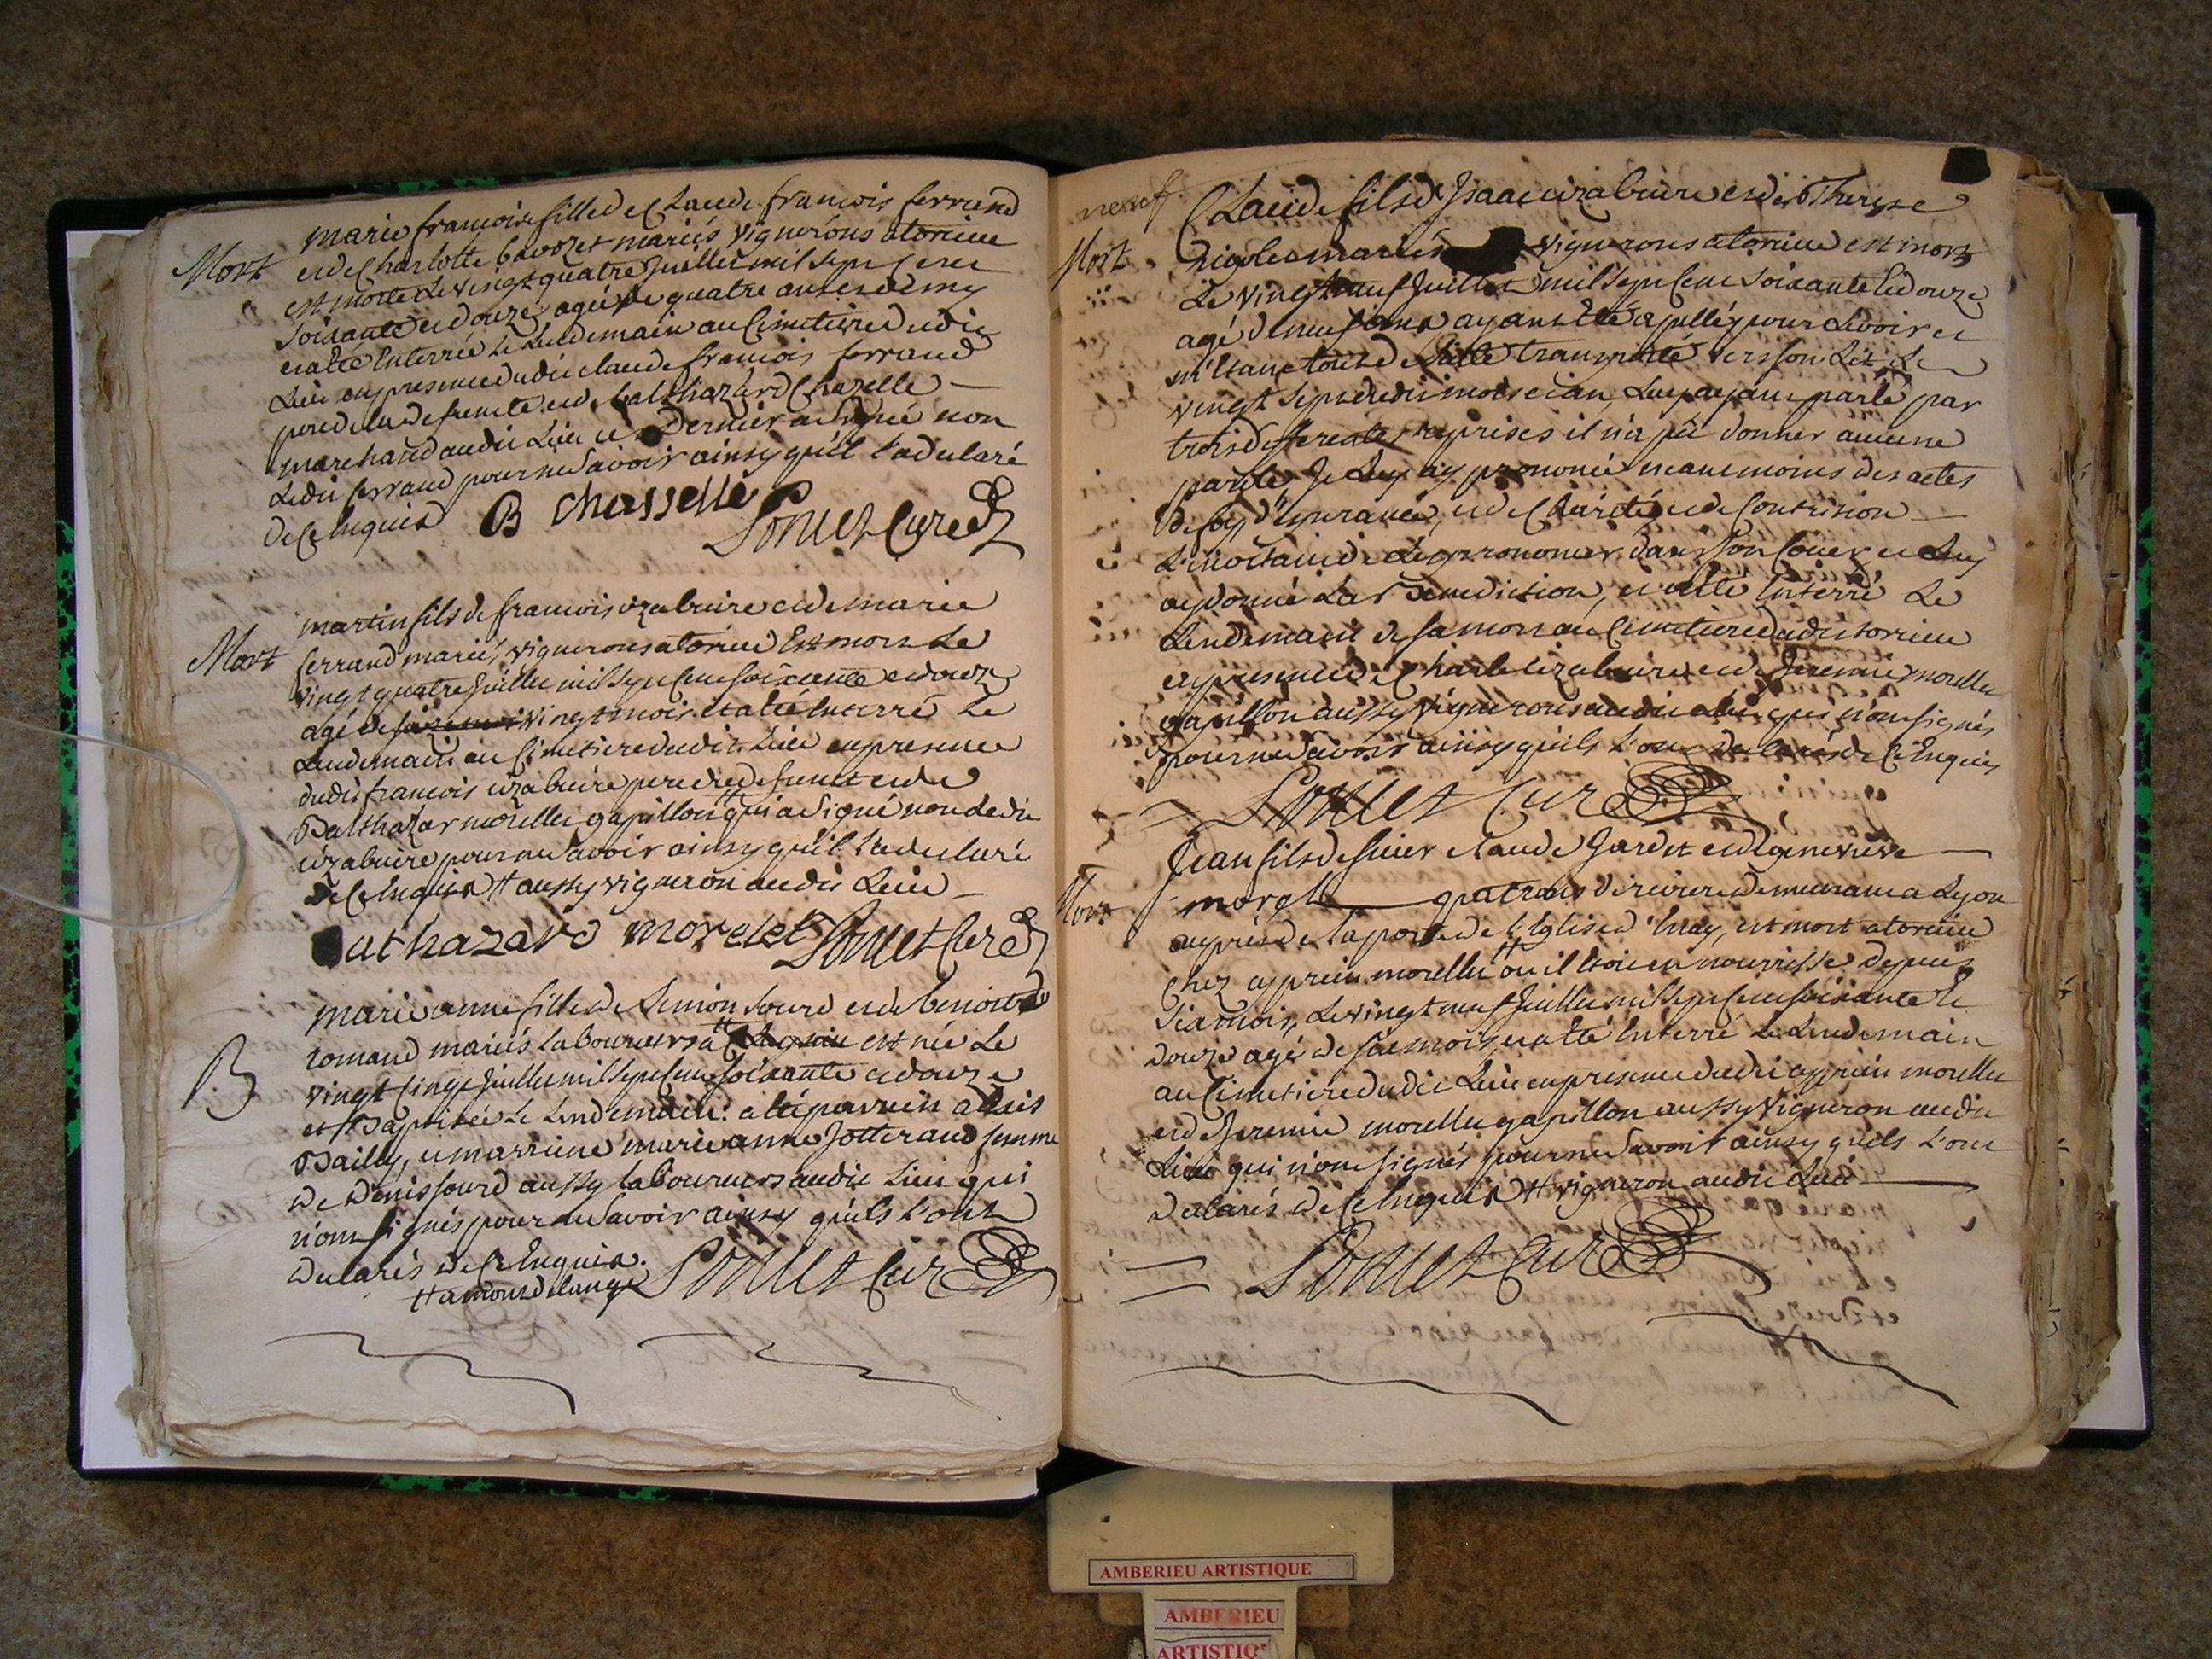 Mort
marie francoise fille de Claude francois ferrand
et de Charlotte bavozet mariés vignerons atorcieu
est morte Le vingt quatre Juillet mil sept cent
soixante et douze agée de quatre ans et demy
et a été Enterrée Le Lendemain au Cimetiere dudit
Lieu en presence dudit claude francois ferrand
pere de la defuncte et de balthazard Chazelle
marchand audit Lieu ce dernier a signé non
Ledit ferrand pour ne savoir ainsy qu'il l'a declaré
de ce Enquis B chasselle
Mort
martin fils de francois izabuire et de marie
ferrand mariés, vignerons atorcieu Est mort Le
vingt quatre Juillet mil sept cent soixante et douze
agé de vingt mois et a été Enterré Le
Lendemain au Cimetiere dudit Lieu en presence
dudit francois izabuire pere du defunct et de
Balthazar morellet gapillon # qui a signé non Ledit
izabuire pour ne savoir ainsy qu'il l'a declaré
de ce Enquis # aussy vigneron audit Lieu
bathazard morelet curé
B
marie anne fille de Simon sourd et de benoite
romand mariés Laboureurs a # est née Le
vingt cinq Juillet mil sept cent soixante et douze
et Baptisée Le Lendemain: a été parrein
Bailly, et marreine marie anne Jotterand femme
de Denis sourd aussy Laboureurs audit Lieu qui
n'ont signés pour ne savoir ainsy qu'ils l'ont
declarés de ce Enquis. curé
neuf
Mort
Claude fils d'Isaac izabuire et de Therese
nigole mariés vignerons atorcieu est mort
Le vingt neuf Juillet mil sept cent soixante Et douze
agé de neuf ans ayant Eté apellé pour Le voir et
m'Etant tout de suitte transporté vers son Lit Le
vingt sept dudit mois et an, Luy ayant parlé par
trois differentes reprises il n'a pû donner aucune
parole Je Luy ay prononcé neanmoins des actes
de foy d'esperance, et de Charité et de Contrition
L'Exortant de Les prononcer dans son Coeur et Luy
ay donné La Benediction, et a été Enterré Le
Lendemain de sa mort au Cimetiere dudit torcieu
en presence de Charle izabuire et de Jeremie morellet
gapillon aussy vignerons audit Lieu qui n'ont signés
pour ne savoir ainsy qu'ils l'ont declarés de ce Enquis
curé
Mort
Jean fils de sieur claude Jardet et de genevieve
morel demeurant a Lyon
auprès de la porte de l'Eglise d'Enay, est mort atorcieu
chez morellet # ou il Etoit en nourrisse depuis
six mois, Le vingt neuf Juillet mil sept cent soixante Et
douze agé de six mois, et a été Enterré Le Lendemain
au Cimetiere dudit Lieu en presence dudit morellet
et de Jeremie morellet gapillon aussy vigneron audit
Lieu qui n'ont signés pour ne savoir ainsy qu'ils l'ont
declarés de ce Enquis # vigneron audit Lieu
curé
AMBERIEU ARTISTIQUE
AMBERIEU